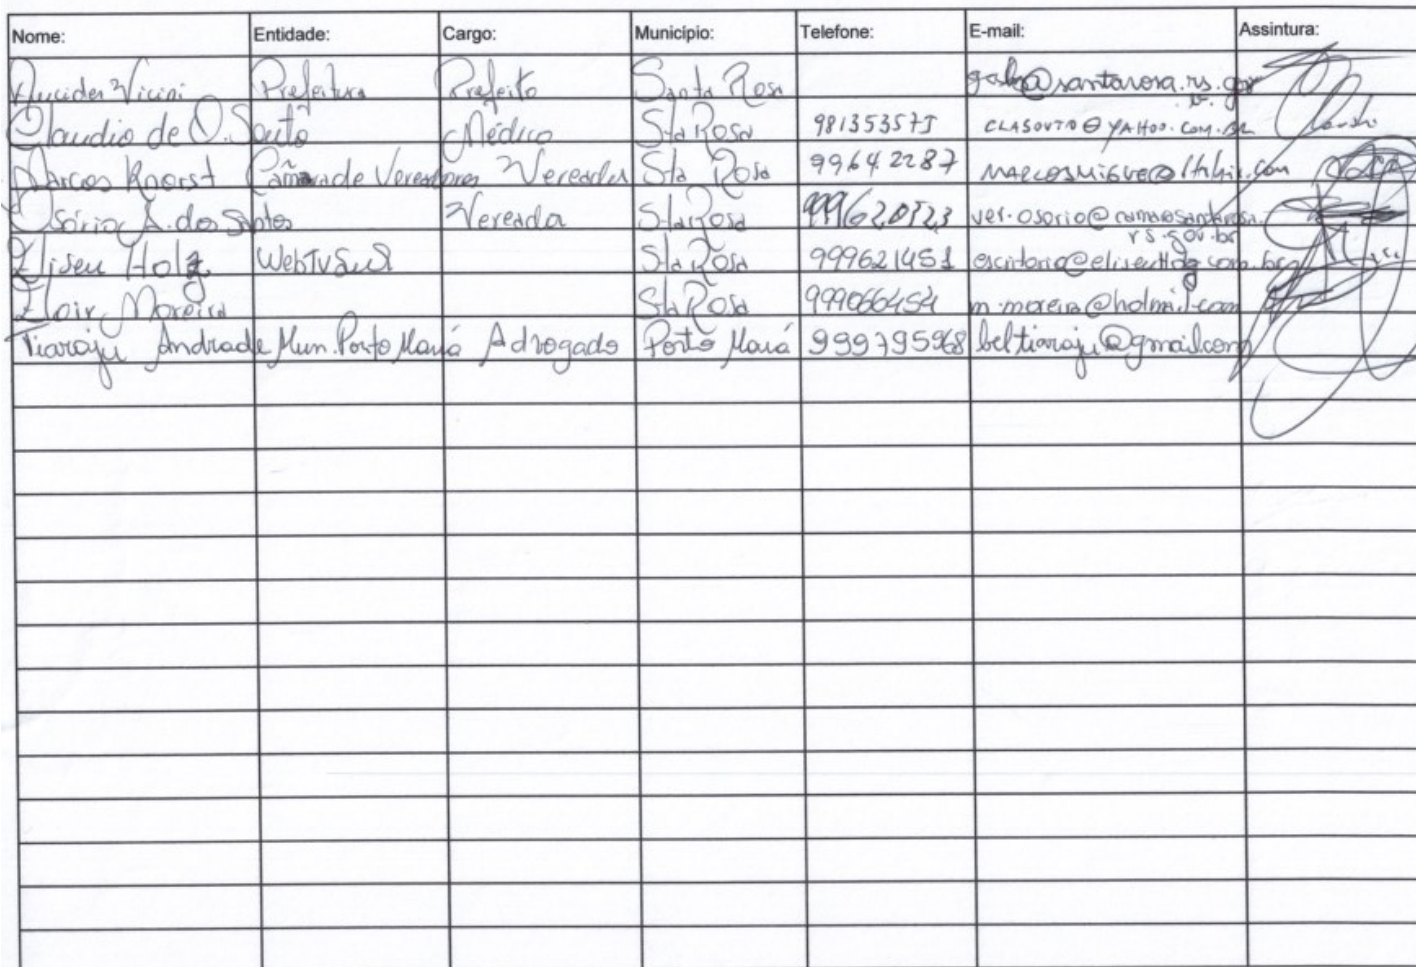 Nome: Entidade: Cargo: Município: Telefone: E-mail: Assintura:
Vicini Prefeitura Prefeito Santa Rosa gab@santarosa.rs.gov
Claudio de O. Souto Médico Sta Rosa 981353575 CLASOUTO@YAHOO.COM.BR
Marcos Knorst Câmara de Vereadores Vereador Sta Rosa 99642287
Osório A. dos Santos Vereador Sta Rosa ver.osorio@camarasantarosa.
rs.gov.br
Eliseu Holz WebTVSul Sta Rosa 999621451
Eloir Moreira Sta Rosa 999066454
Tiaraju Andrade Mun. Porto Mauá Advogado Porto Mauá 999795968 beltiaraju@gmail.com